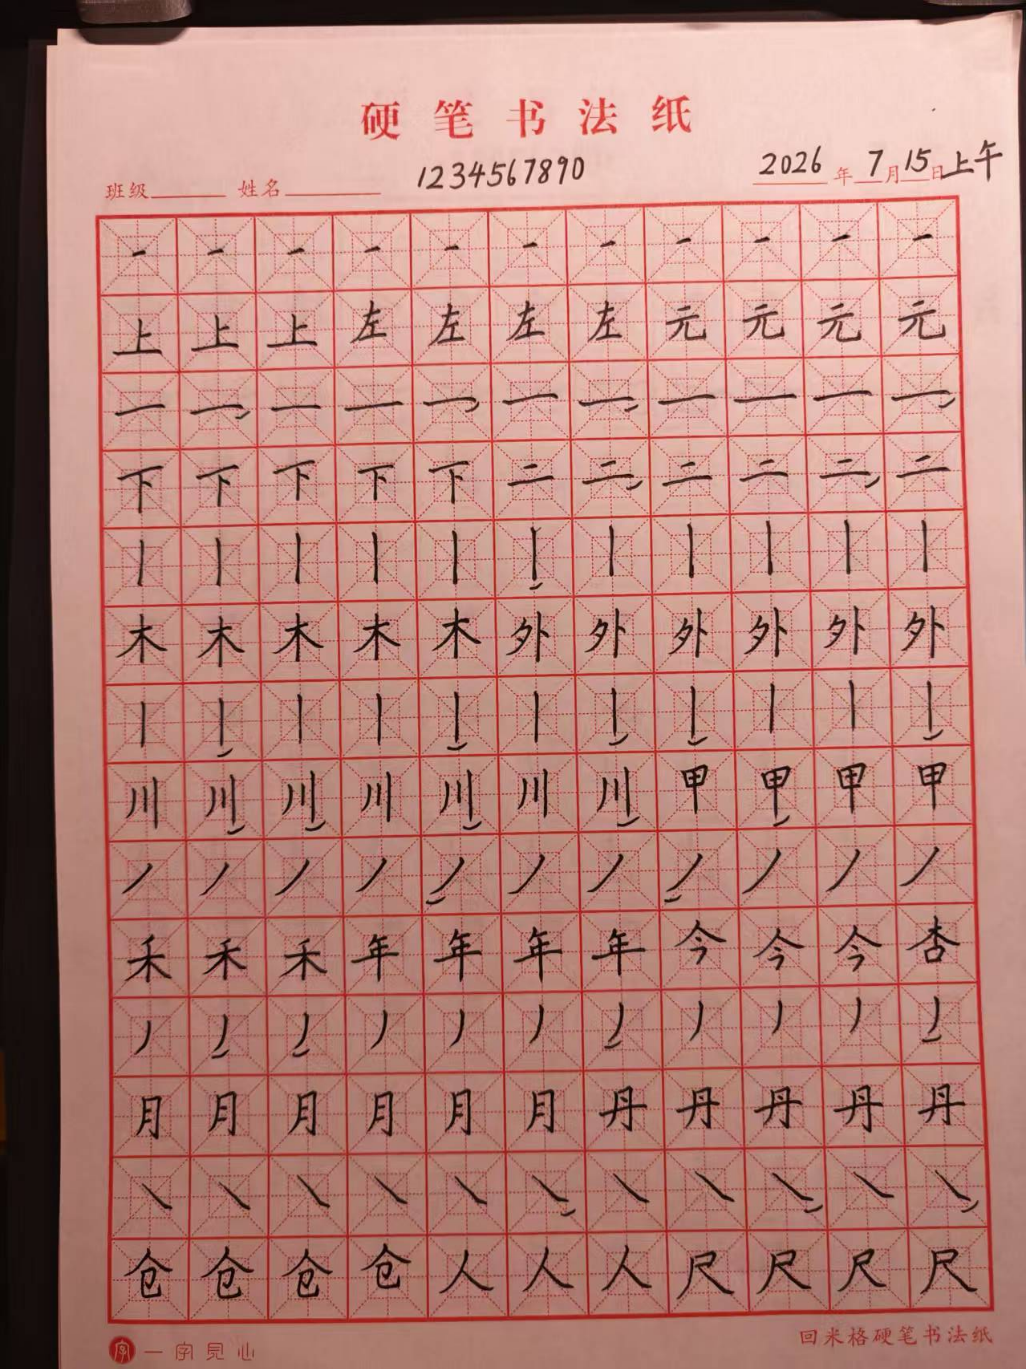 硬笔书法纸
班级 姓名 1234567890 2026年7月15日上午
一一一一一一一一一一一
上上上左左左左元元元元
一一一一一一一一一一一
下下下下下二二二二二二
丨丨丨丨丨丨丨丨丨丨丨
木木木木木外外外外外外
丨丨丨丨丨丨丨丨丨丨丨
川川川川川川川甲甲甲甲
丿丿丿丿丿丿丿丿丿丿丿
禾禾禾年年年年今今今杏
丿丿丿丿丿丿丿丿丿丿丿
月月月月月月丹丹丹丹丹
㇏㇏㇏㇏㇏㇏㇏㇏㇏㇏㇏
仓仓仓仓人人人尺尺尺尺
字 一字见心 回米格硬笔书法纸